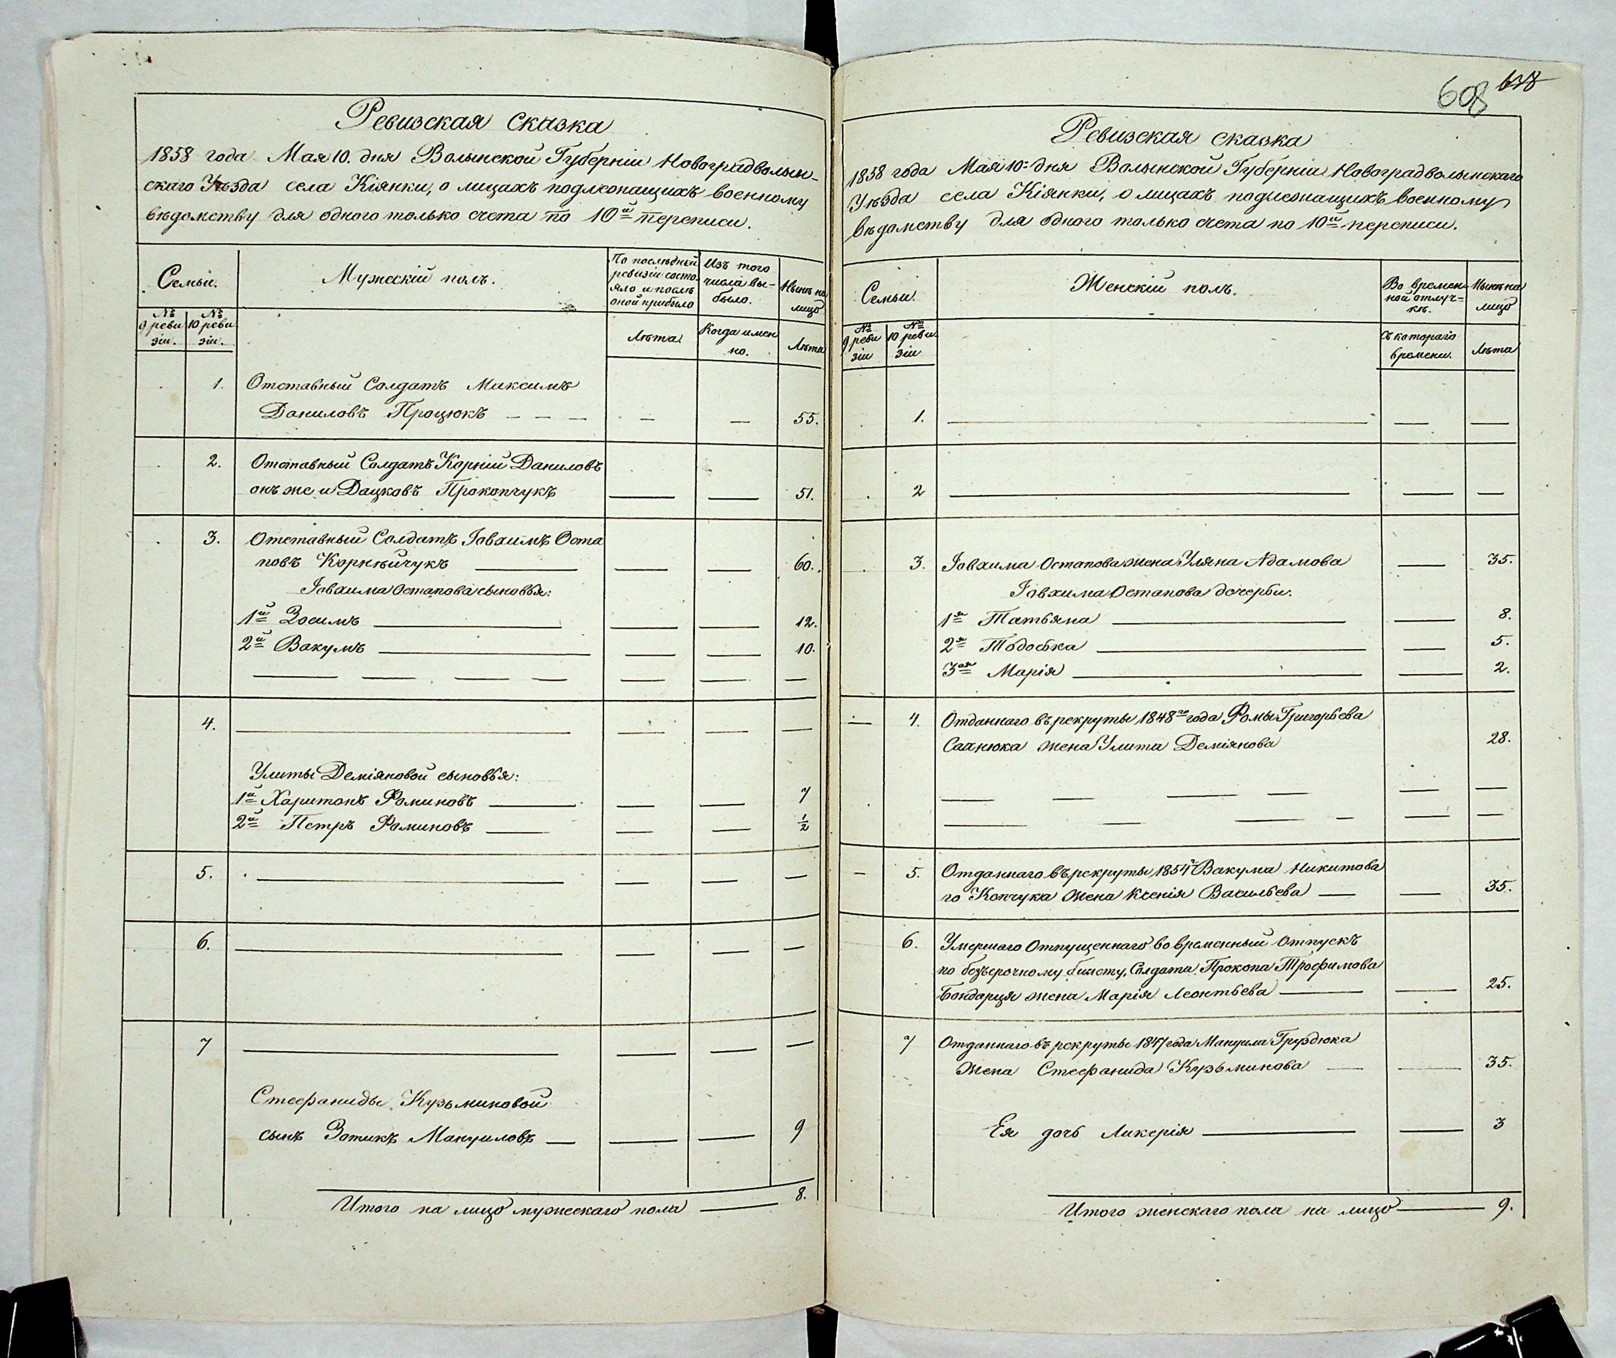 Ревизская сказка
1858 года Мая 10. дня Волынской Губерніи Новоградволын-
скаго Уѣзда села Кіянки, о лицахъ подлежащихъ военному
вѣдомству для одного только счета по 10й переписи.
Семьи.
Мужескій полъ.
По послѣдней
ревизіи состо-
яло и послѣ
оной прибыло
Изъ того
числа вы-
было.
Нынѣ на
лицо
№ 9 реви
зіи.
№ 10 реви
зіи.
Лѣта
Когда имен
но.
Лѣта
1. Отставный Солдатъ Максимъ
Даниловъ Процюкъ — — — — — 55.
2. Отставный Солдатъ Корній Даниловъ
онъ же и Дацковъ Прокопчукъ — — 51.
3. Отставный Солдатъ Іовхимъ Оста
повъ Корнѣйчукъ — — — 60.
Іовхима Остапова сыновья:
1й Зосимъ — — — 12.
2й Вакумъ — — — 10.
— — — — — — —
4. — — — —
Улиты Деміяновой сыновья:
1й Харитонъ Фоминовъ — — — 7
2й Петръ Фоминовъ — — — ½
5. — — — —
6. — — — —
7 — — — —
Стефаниды Кузьминовой
сынъ Зотикъ Мануиловъ — — — 9
Итого на лицо мужескаго пола — 8.
608 638
Ревизская сказка
1858 года Мая 10: дня Волынской Губерніи Новоградволынскаго
Уѣзда села Кіянки, о лицахъ подлежащихъ военному
вѣдомству для одного только счета по 10й переписи.
Семьи.
Женскій полъ.
Во времен-
ной отлуч-
кѣ.
Нынѣ на
лицо
№ 9 реви
зіи
№ 10 реви
зіи
Съ котораго
времени.
Лѣта
1. — — —
2 — — —
3. Іовхима Остапова жена Уляна Адамова — 35.
Іовхима Остапова дочери:
1я Татьяна — — 8.
2я Тодоська — — 5.
3ая Марія — — 2.
— 4. Отданнаго въ рекруты 1848го года Фомы Григорьева
Сахнюка жена Улита Деміянова 28.
— — — — — —
— — — — — —
— 5. Отданнаго въ рекруты 1854 г Вакума Никитова
го Кончука жена Ксенія Васильева — — 35.
6. Умершаго Отпущеннаго во временный Отпускъ
по безсрочному билету, Солдата Прокопа Трофимова
Бондарця жена Марія Леонтьева — — 25.
7 Отданнаго въ рекруты 1847 года Мануила Груздюка
жена Стефанида Кузьминова — — 35.
Ея дочь Ликерія — — 3
Итого женскаго пола на лицо — 9.